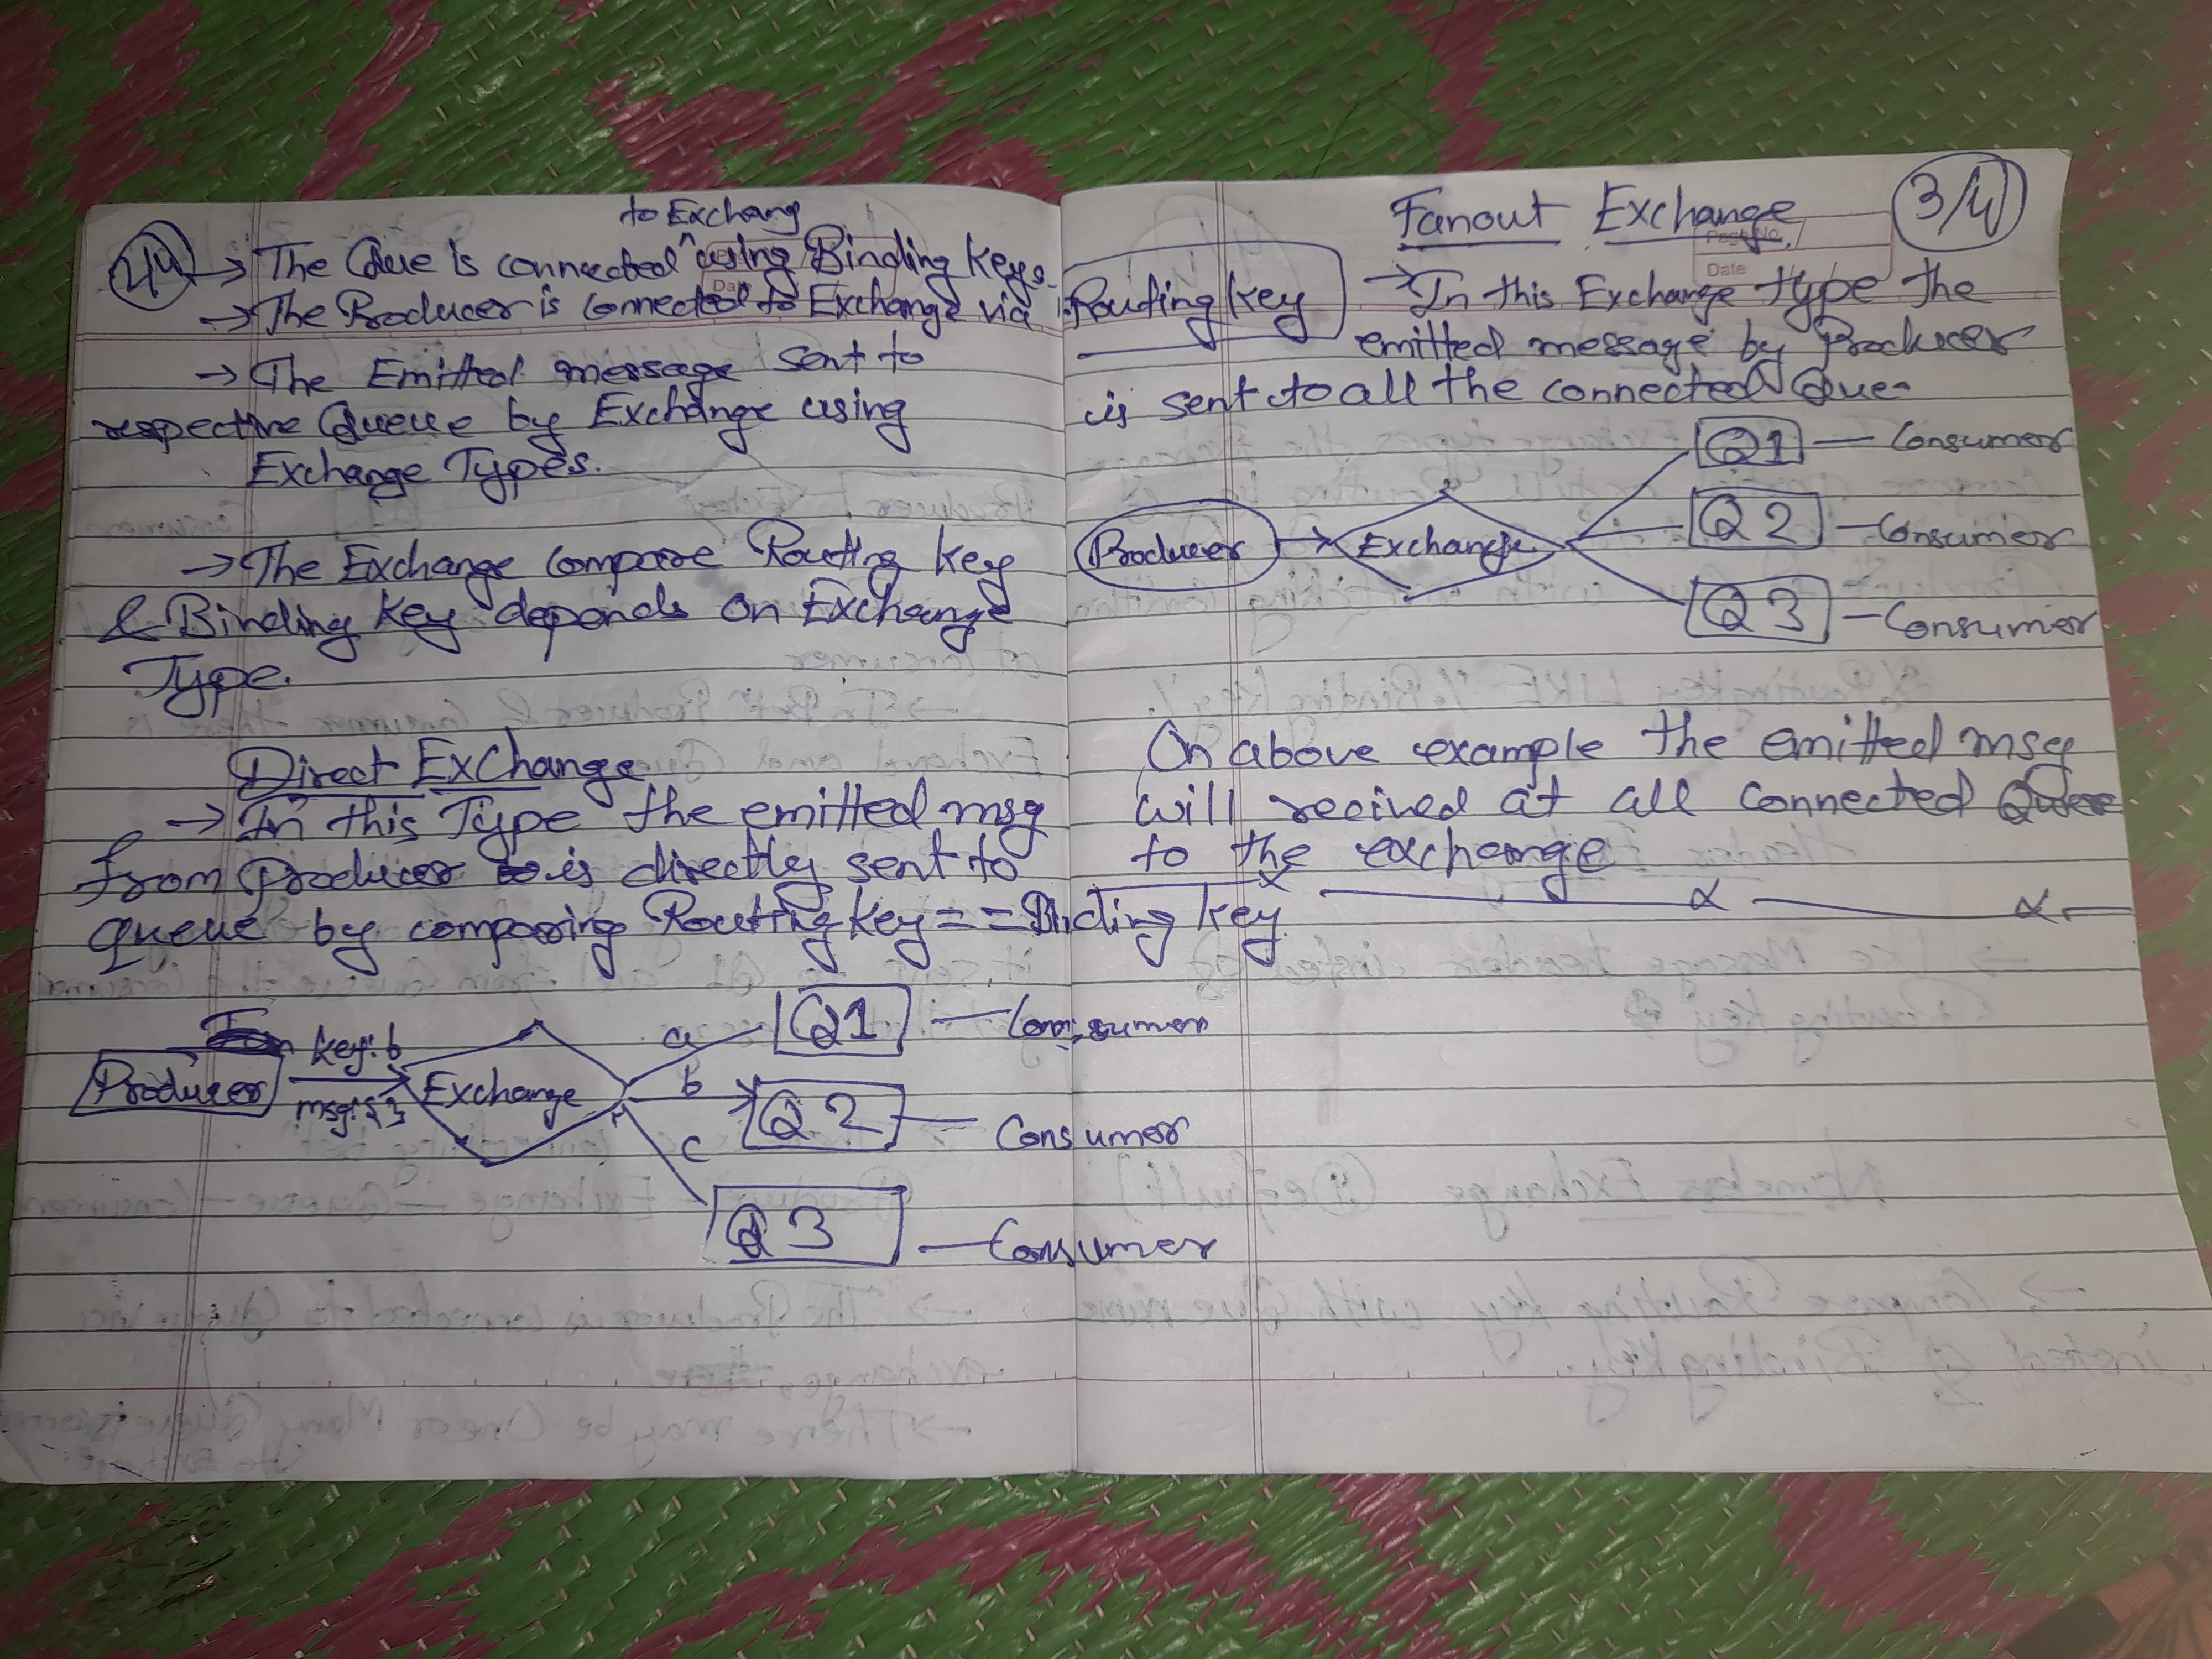 2/4
→ The Que is connected to Exchang using Binding keys.
→ The Producer is connected to Exchange via Routing key
→ The Emitted message sent to
respective Queue by Exchange using
Exchange Types.
→ The Exchange compose Routing key
& Binding key depends on Exchange
Type.
Direct Exchange
→ In this Type the emitted msg
from Producer is directley sent to
queue by composing Routing key == Binding key
key: b
Producer
msg: {}
Exchange
a
b
c
Q1
Q2
Q3
Consumer
Consumer
Page No.
Date
3/4
Fanout Exchange
→ In this Exchange type the
emitted message by Producer
is sent to all the connected Ques
Producer
Exchange
Q1 — Consumer
Q2 — Consumer
Q3 — Consumer
On above example the emitted msg
will recived at all connected Quee
to the exchange